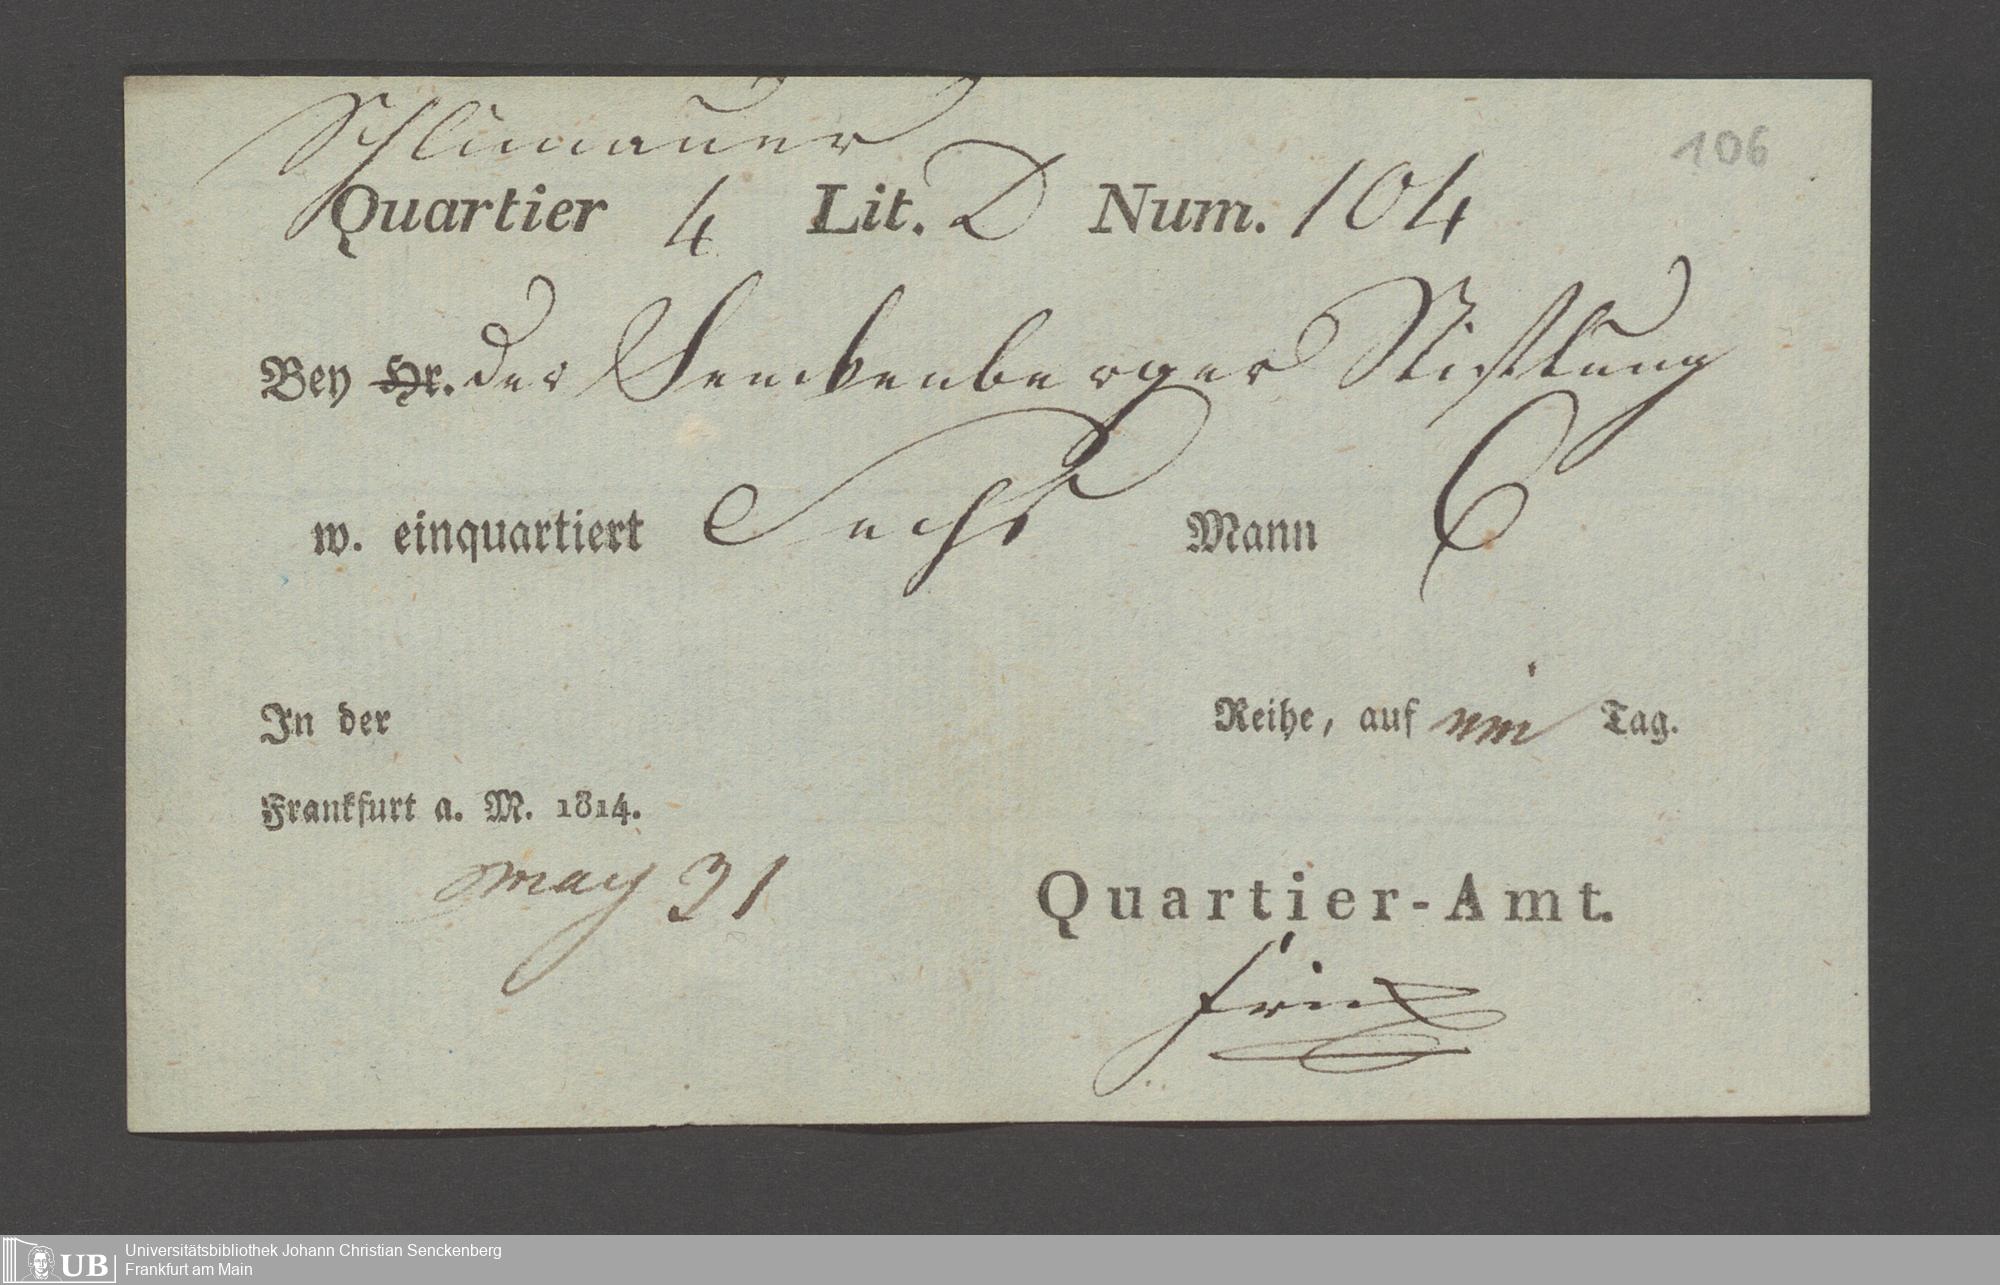 106
Quartier 4 Lit. D Num. 104
Bey Hr. der Senckenberger Stiftung
w. einquartiert Sechs Mann 6
In der Reihe, auf ein Tag.
Frankfurt a. M. 1814.
may 31
Quartier-Amt.
UB
Universitätsbibliothek Johann Christian Senckenberg
Frankfurt am Main